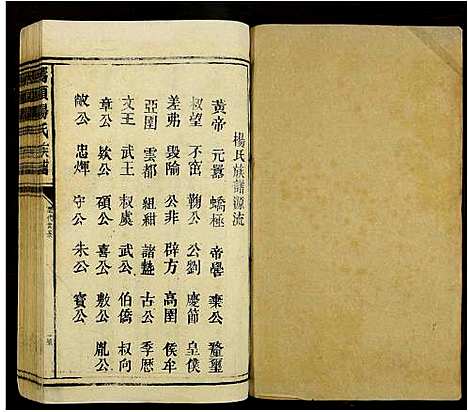 楊氏族譜源流
黃帝 元囂 蟜極 帝嚳 棄公 䅘璽
叔望 不窋 鞠公 公劉 慶節 皇僕
差弗 毀隃 公非 辟方 高圉 侯牟
亞圉 雲都 組紺 諸盩 古公 季歷
文王 武王 叔虞 武公 伯僑 叔向
章公 欸公 碩公 喜公 敷公 胤公
敞公 忠煇 守公 朱公 寶公
楊氏族譜